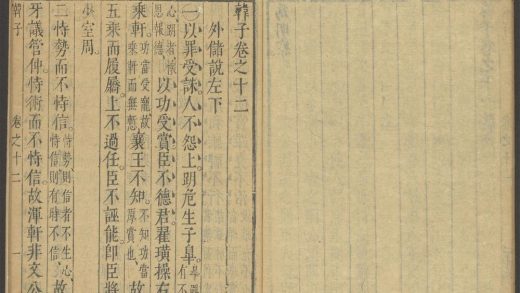 韓子卷之十二
外儲說左下
一以罪受誅人不怨上跀危生子臯
心跀者懷恩報德以功受賞臣不德君翟璜操右
乘軒功當受寵故乘軒而無慙襄王不知不知功當厚賞也故
五乘而履屩上不過任臣不誣能即臣將
少室周
二恃勢而不恃信恃勢則信者不生心恃信則有時不信故
牙議管仲恃術而不恃信故渾軒非文公
韓子 卷之十二 一